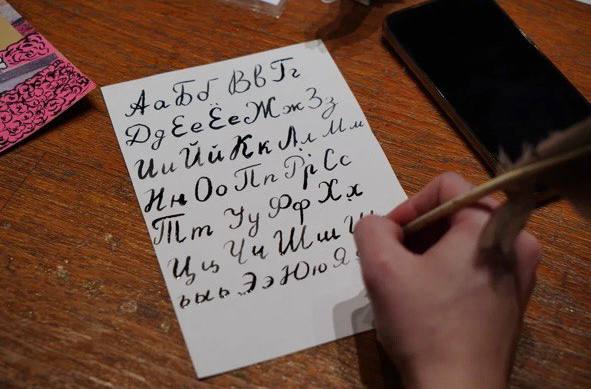 Аа Бб Вв Гг
Дд Ее Ёё Жж Зз
Ии Йй Кк Лл Мм
Нн Оо Пп Рр Сс
Тт Уу Фф Хх
Цц Чч Шш Щ
ъ ы ь Ээ Юю Я